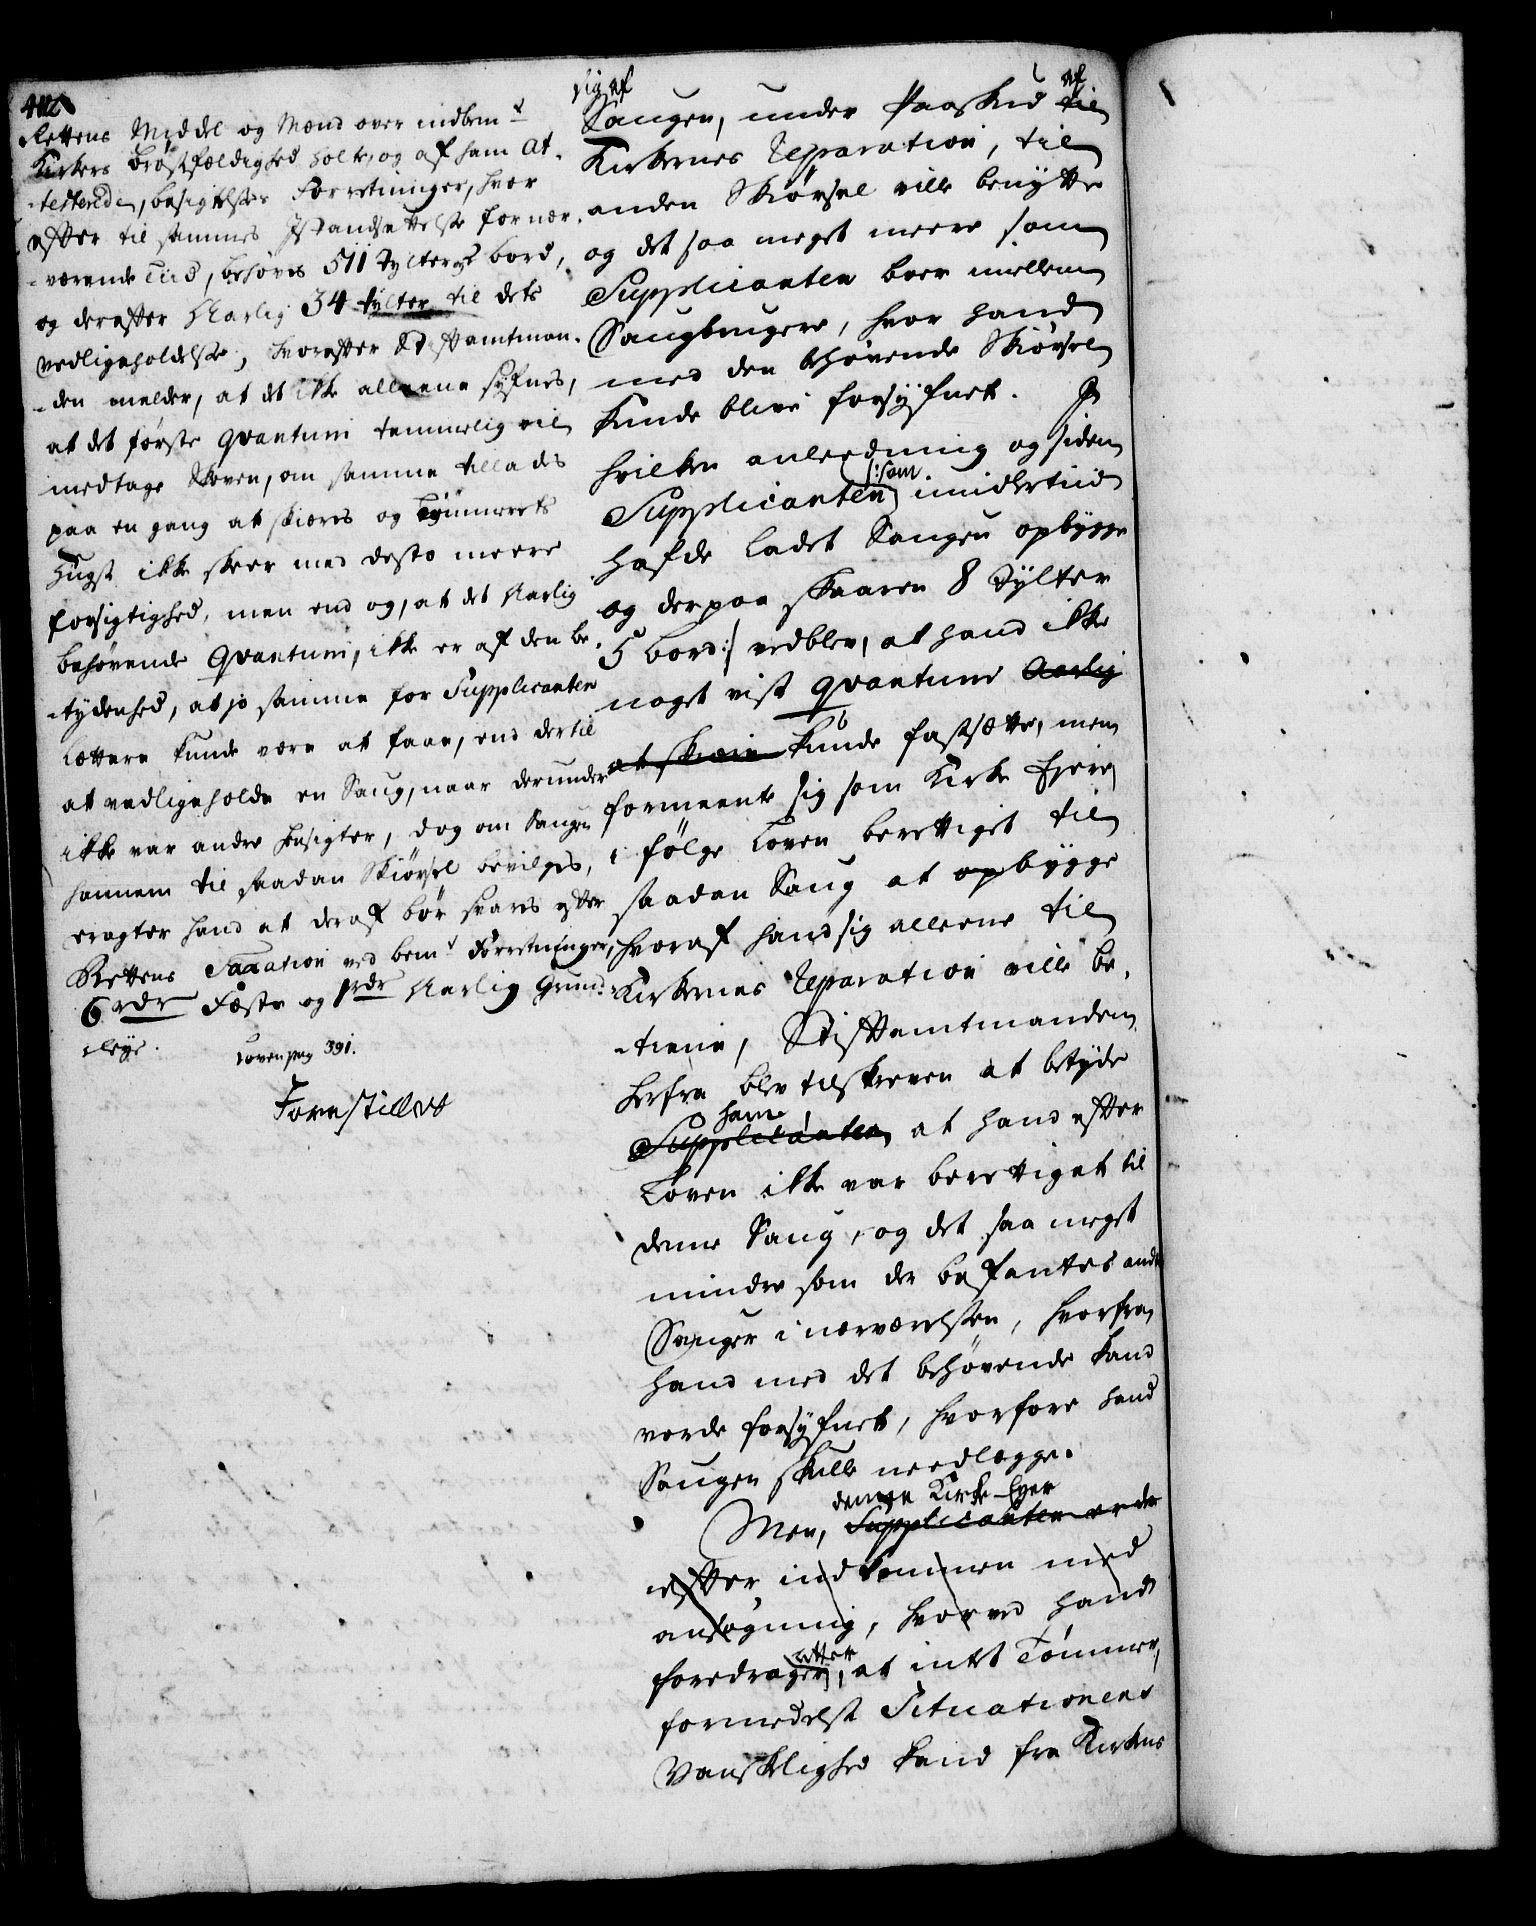 412
Rettens Middel og Mænd over indbem.t
Kirkers Brøstfældighed holte, og af ham At-
-testerede, besigtelses Forretninger, hvor
efter til sammes Istandsættelse for nær-
-værende Tiid, behøves 511 Tylter 5 bord,
og derefter Aarlig 34 tylter til dets
vedligeholdelse, hvorefter Stiftamtman-
-den melder, at det ikke alleene syfnes,
at det første Qvantum temmelig vil
medtage Skoven, om samme tillades
paa en gang at skiæres og Tømmerets
Hugst ikke skeer med desto meere
forsigtighed, men end og, at det Aarlig
behøvende Qvantum, ikke er af den be-
-tydenhed, at jo samme for Supplicanten
lættere kunde være at faae, end dertil
at vedligeholde en Saug, naar derunder
ikke var andre hensigter, dog om Saugen
hannem til saadan Skiørsel bevilges,
eragter hand at deraf bør svares efter
Rettens Taxation ved bem.t Forretninger,
6 rdr Fæste og 1 rdr Aarlig Grund-
-leye.
Loven pag 391.
Forestillet
sig af
Saugen, under Paaskud af til
Kirkernes Reparation, til
anden Skiørsel ville benytte
og det saa meget meere som
Supplicanten boer mellem
Saugbrugere, hvor hand
med den behøvende Skiørsel
kunde blive forsyfnet. J
hvilken anleedning og siden
Supplicanten /:som imidlertiid
hafde ladet Saugen opbygge
og derpaa skaaren 8 Tylter
5 bord:/ vedblev, at hand ikke
noget vist qvantum Aarlig
at skiære kunde fastsætte, men
formeente sig som Kirke Ejere
i følge Loven berettiget til
saadan Saug at opbygge
hvoraf hand sig alleene til
Kirkernes Reparation ville be-
-tiene, Stiftamtmanden
herfra blev tilskreven at betyde
ham
Supplicanten, at hand efter
Loven ikke var berettiget til
denne Saug, og det saa meget
mindre som der befantes andre
Sauger i nærværelsen, hvorfra
hand med det behøvende kand
vorde forsyfnet, hvorfore hand
Saugen skulle needlægge.
denne Kirke-Eyer
Men, Supplicanten er der
efter indkommen med
ansøgning, hvorved hand
foredrager atter, at intet Tømmer,
formedelst Situationens
Vanskelighed kand fra Kirkens